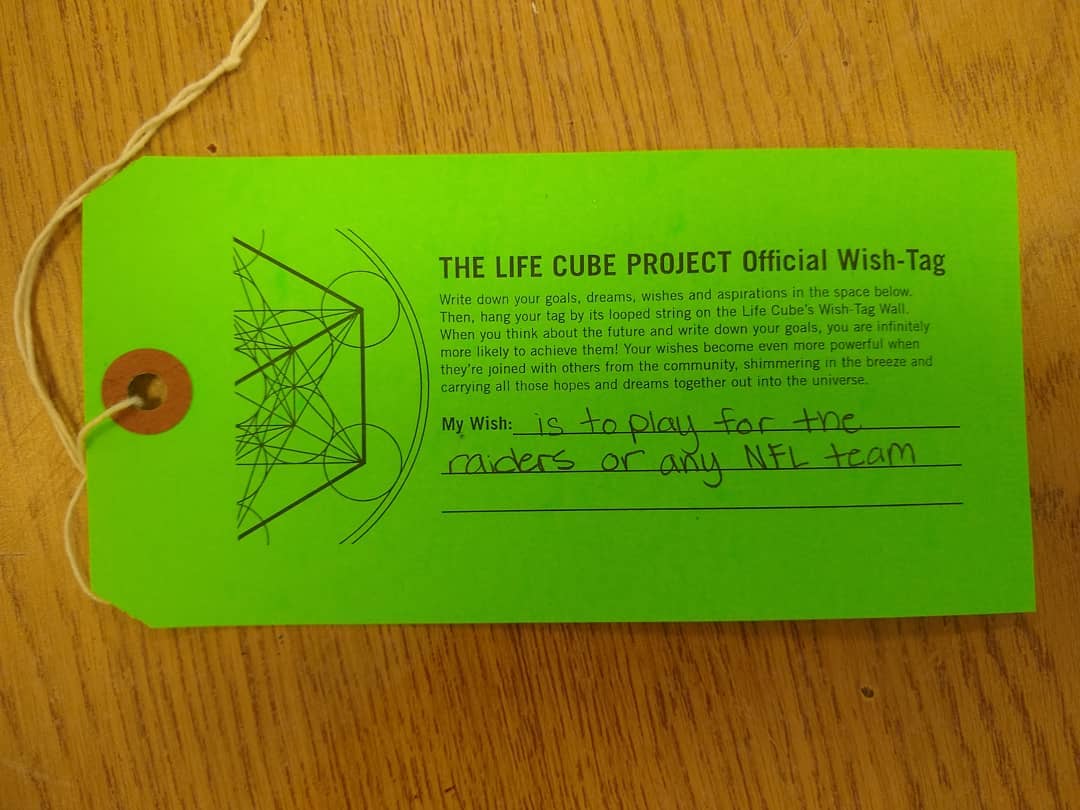 THE LIFE CUBE PROJECT Official Wish-Tag
Write down your goals, dreams, wishes and aspirations in the space below.
Then, hang your tag by its looped string on the Life Cube's Wish-Tag Wall.
When you think about the future and write down your goals, you are infinitely
more likely to achieve them! Your wishes become even more powerful when
they're joined with others from the community, shimmering in the breeze and
carrying all those hopes and dreams together out into the universe.
My Wish: is to play for the
raiders or any NFL team